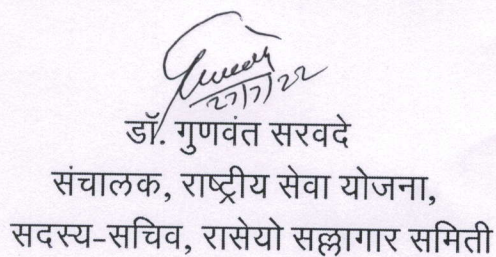 27/7/22
डॉ. गुणवंत सरवदे
संचालक, राष्ट्रीय सेवा योजना,
सदस्य-सचिव, रासेयो सल्लागार समिती